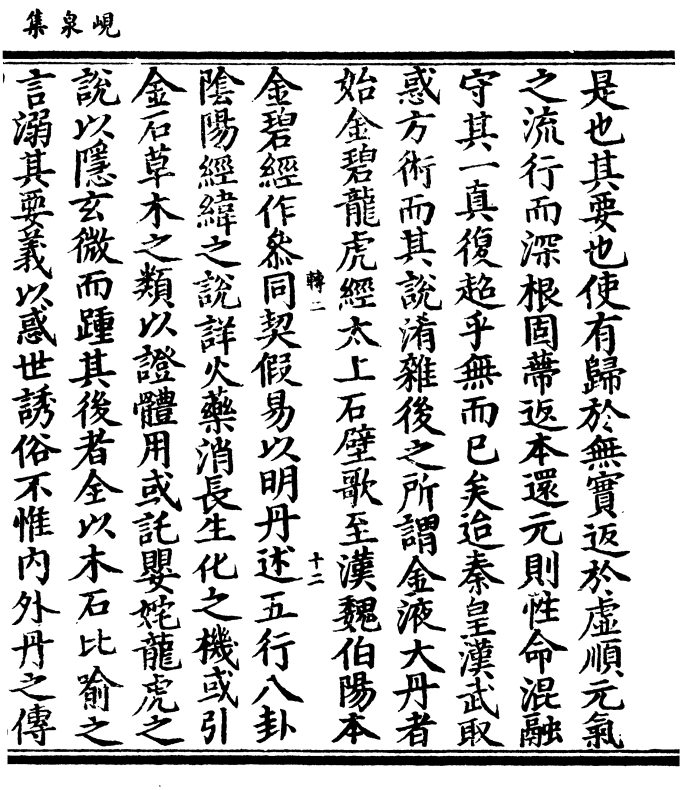 峴泉集
是也其要也使有歸於無實返於虛順元氣
之流行而深根固蔕返本還元則性命混融
守其一真復超乎無而已矣迨秦皇漢武取
惑方術而其說淆雜後之所謂金液大丹者
始金碧龍虎經太上石壁歌至漢魏伯陽本
金碧經作叅同契假易以明丹述五行八卦
轉二
十二
陰陽經緯之說詳火藥消長生化之機或引
金石草木之類以證體用或託嬰姹龍虎之
說以隱玄微而踵其後者全以木石比喻之
言溺其要義以惑世誘俗不惟內外丹之傳